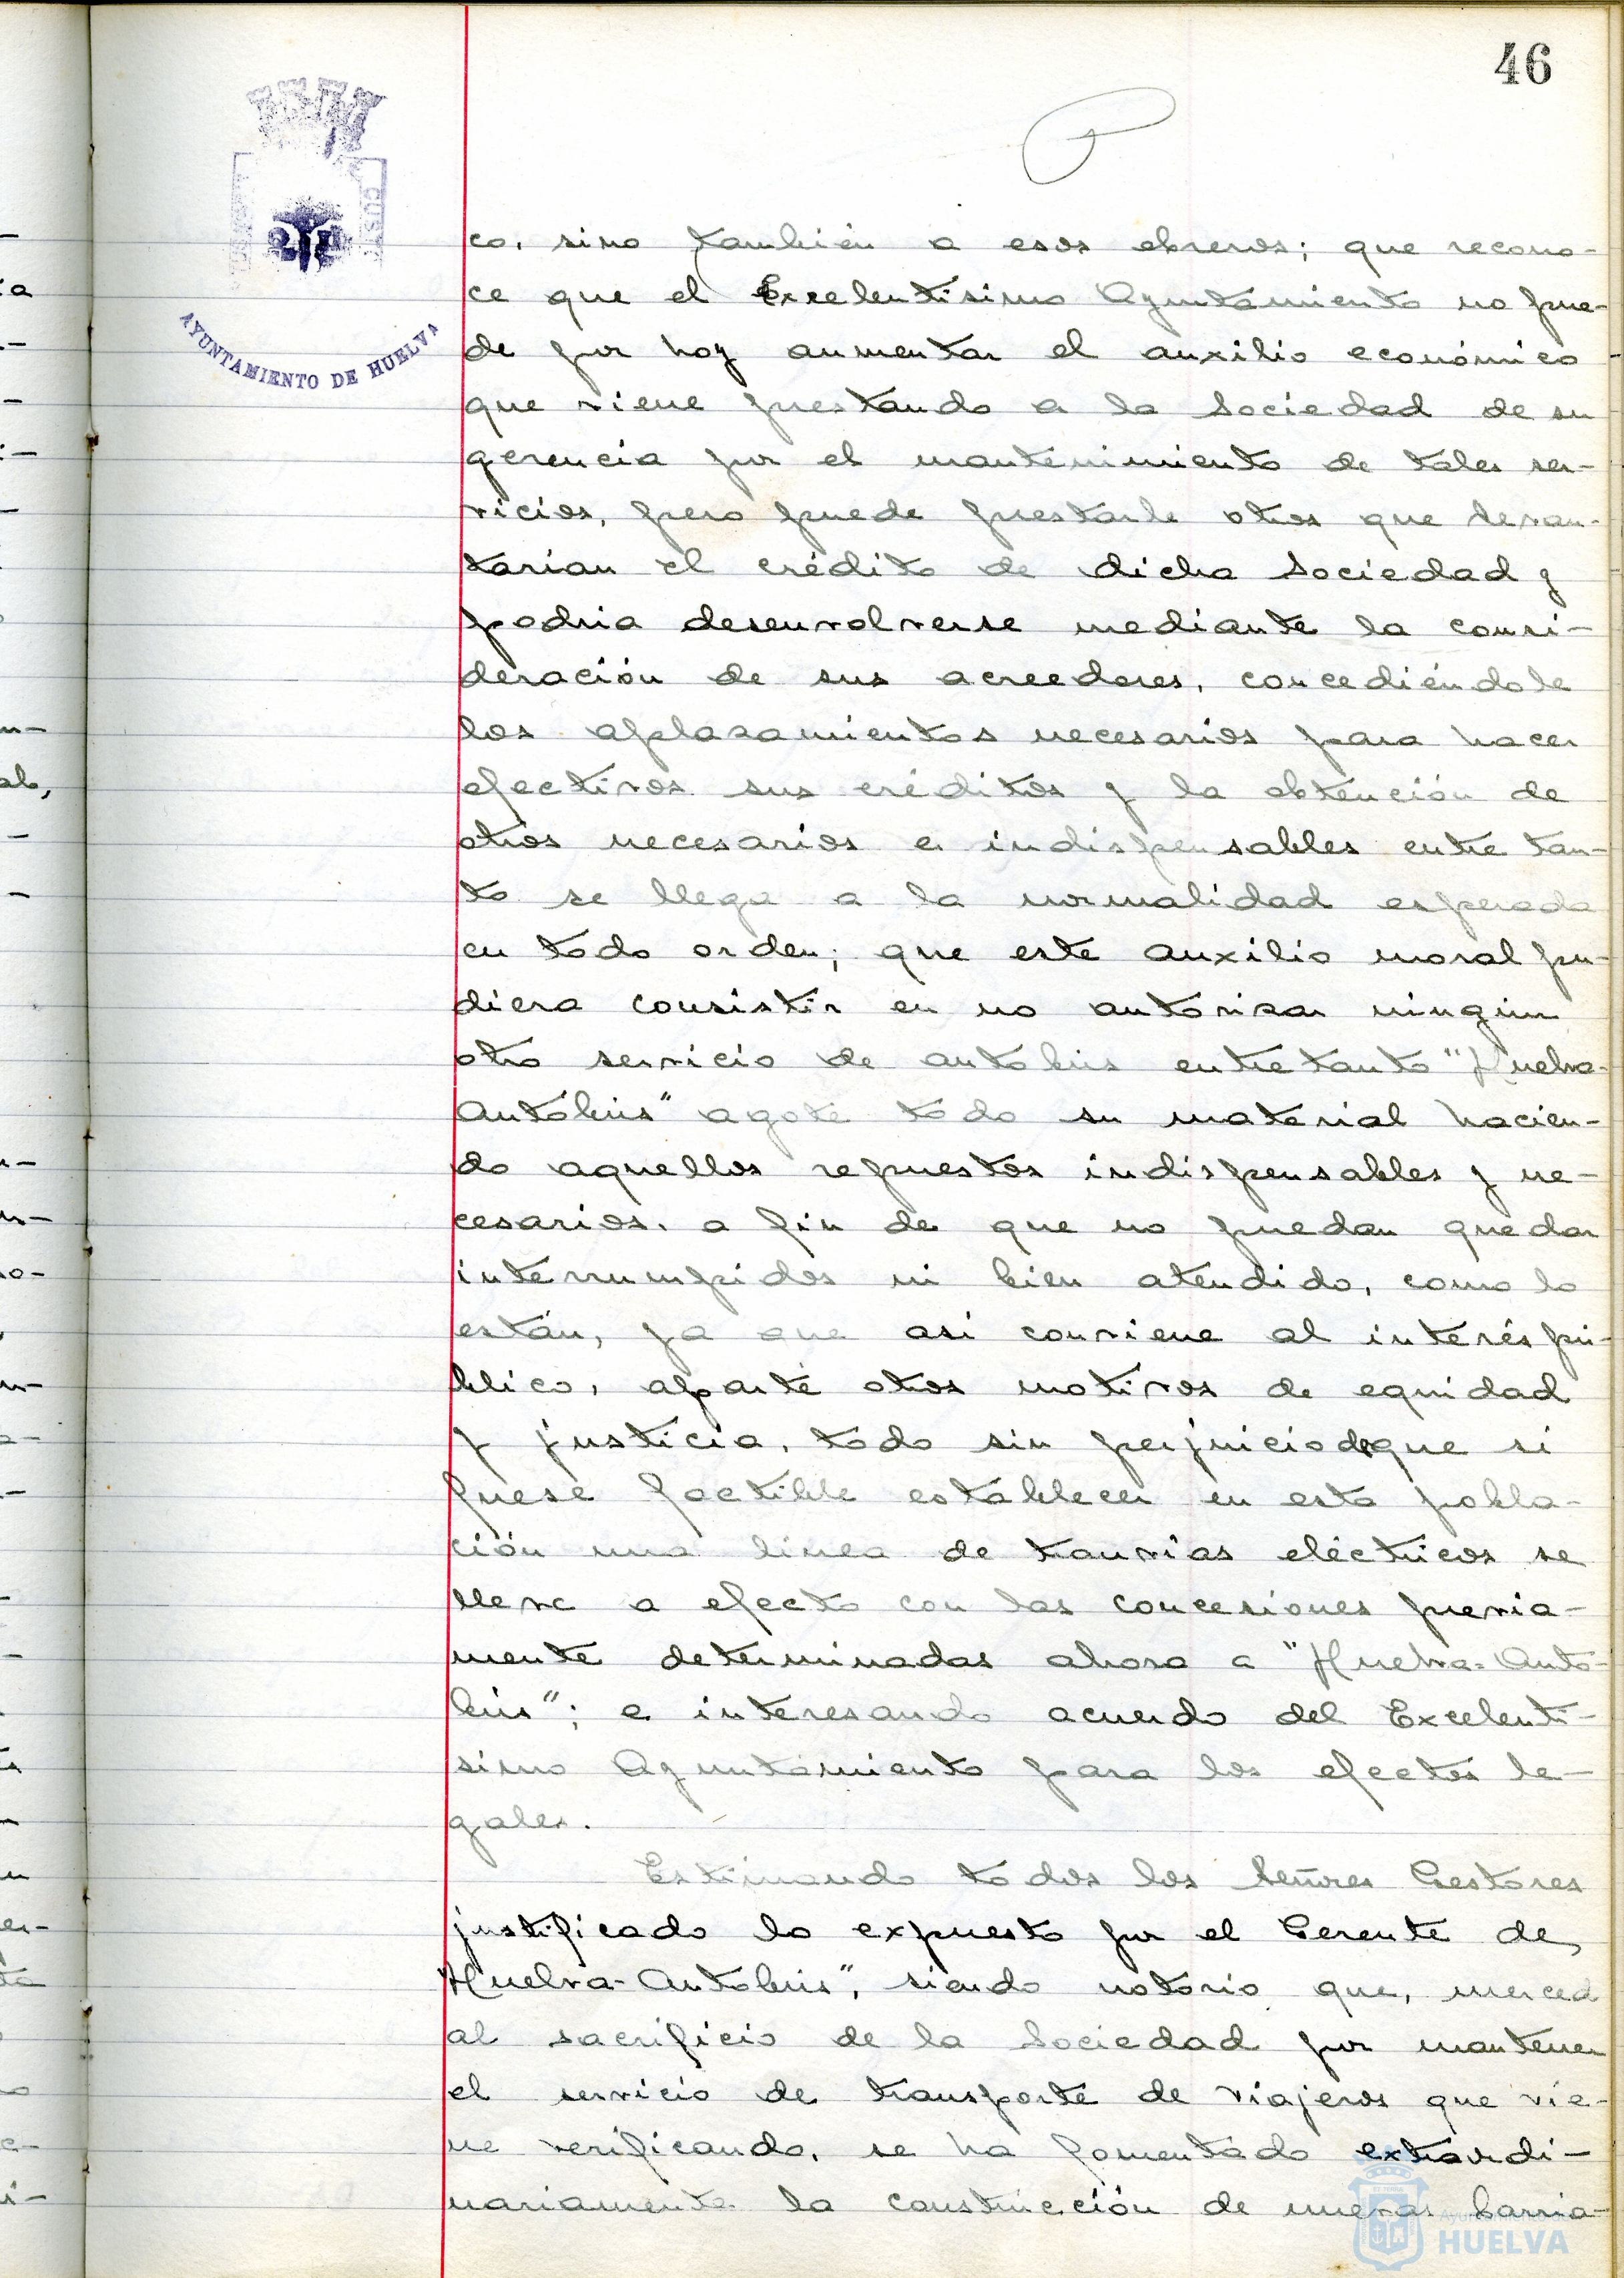 46
AYUNTAMIENTO DE HUELVA
co, sino también a esos obreros; que recono-
ce que el Excelentísimo Ayuntamiento no pue-
de por hoy aumentar el auxilio económico
que viene prestando a la Sociedad de su
gerencia por el mantenimiento de tales ser-
vicios, pero puede prestarle otros que levan-
tarían el crédito de dicha Sociedad y
podria desenvolverse mediante la consi-
deración de sus acreedores, concediéndole
los aplazamientos necesarios para hacer
efectivos sus créditos y la obtención de
otros necesarios e indispensables entre tan-
to se llega a la normalidad esperada
en todo orden; que este auxilio moral pu-
diera consistir en no autorizar ningún
otro servicio de autobús entretanto "Huelva-
Autobús" agote todo su material hacien-
do aquellos repuestos indispensables y ne-
cesarios, a fin de que no puedan quedar
interrumpidos ni bien atendido, como lo
están, ya que así conviene al interés pú-
blico, aparte otros motivos de equidad
y justicia, todo sin perjuicio de que si
fuese factible establecer en esta pobla-
ción una línea de tranvías eléctricos se
lleve a efecto con las concesiones previa-
mente determinadas ahora a "Huelva-Auto-
bús"; e interesando acuerdo del Excelentí-
simo Ayuntamiento para los efectos le-
gales.
Estimando todos los Señores Gestores
justificado lo expuesto por el Gerente de
"Huelva-Autobús", siendo notorio que, merced
al sacrificio de la Sociedad por mantener
el servicio de transporte de viajeros que vie-
ne verificando, se ha fomentado extraordi-
nariamente la construcción de nuevas barria-
Ayuntamiento de
HUELVA